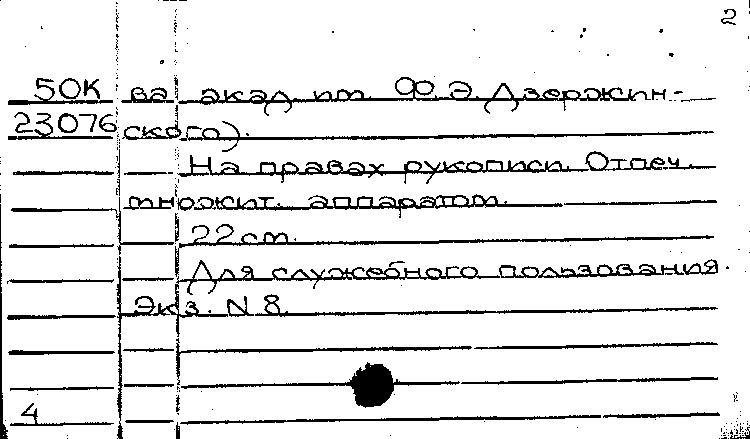 2
50К ва акад. им. Ф.Э. Дзержин-
23076 ского).
На правах рукописи. Отпеч.
множит. аппаратом.
22 см.
Для служебного пользования.
Экз. N 8.
4